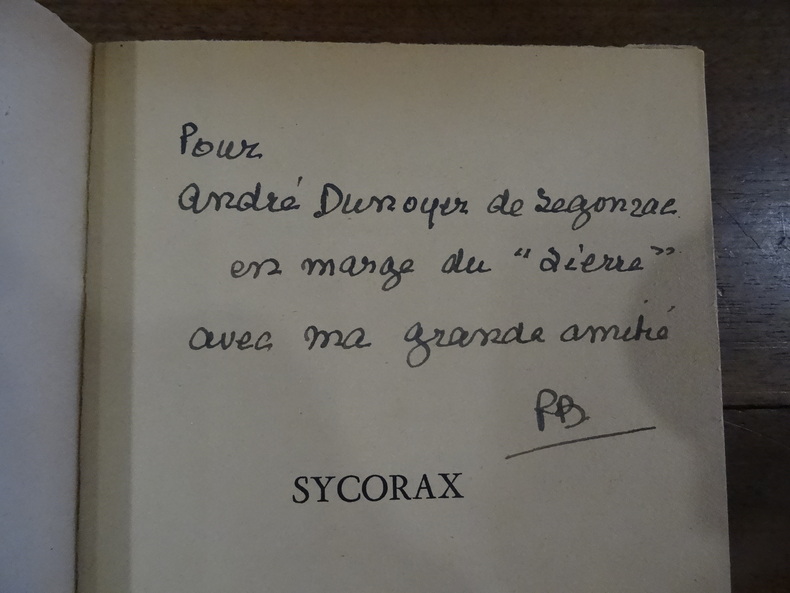 Pour
André Dunoyer de Segonzac
en marge du "Lierre"
avec ma grande amitié
RB
SYCORAX